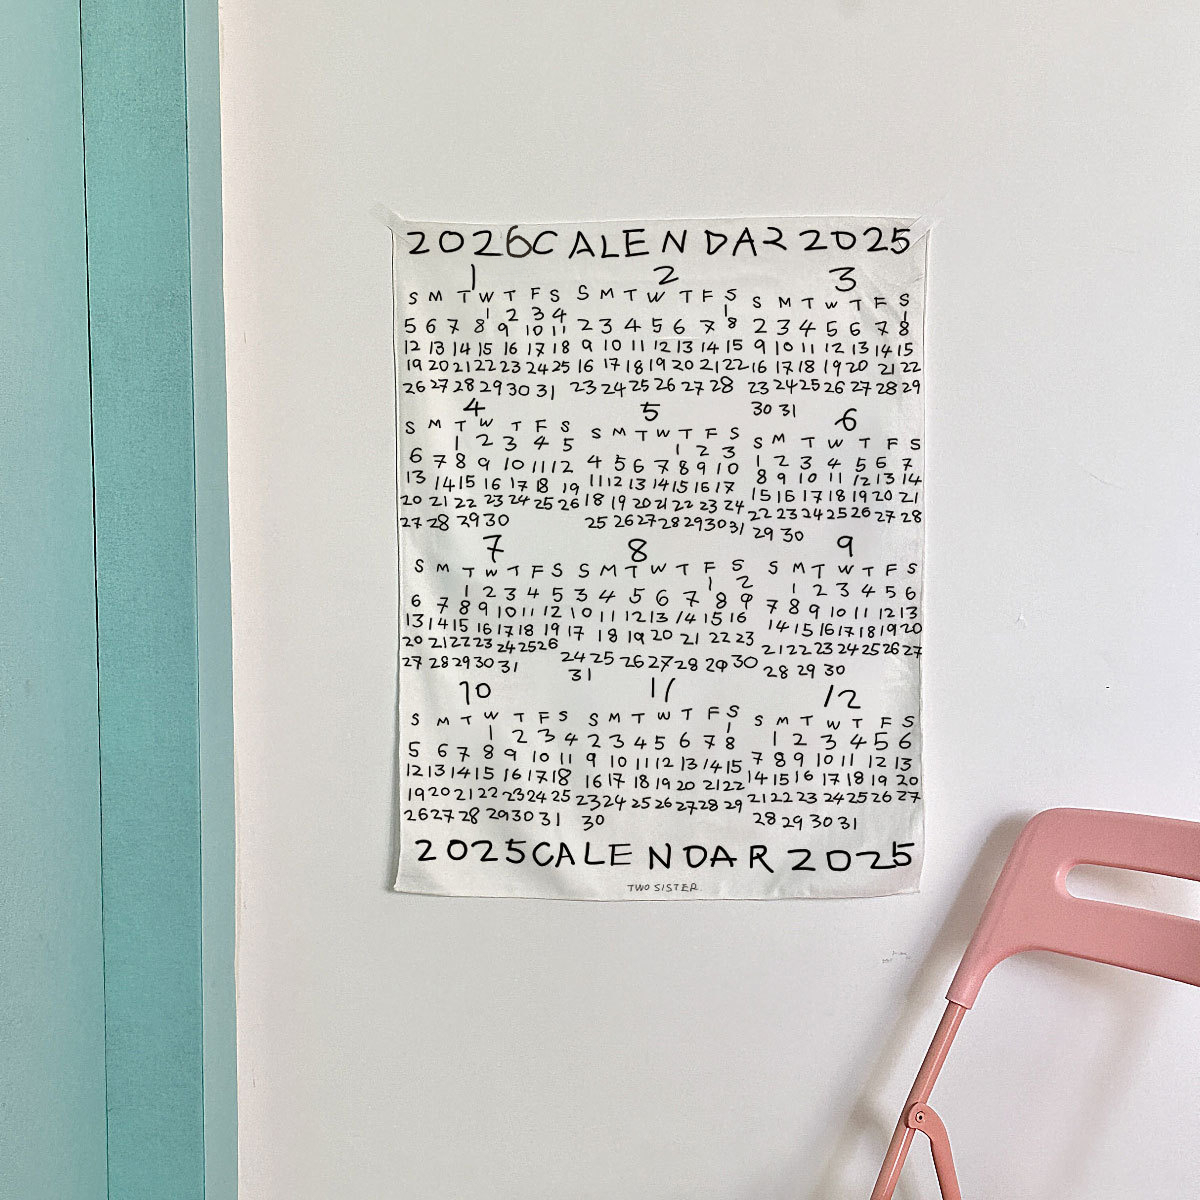 2026CALENDAR 2025
1
S M T W T F S
1 2 3 4
5 6 7 8 9 10 11
12 13 14 15 16 17 18
19 20 21 22 23 24 25
26 27 28 29 30 31
2
S M T W T F S
1
2 3 4 5 6 7 8
9 10 11 12 13 14 15
16 17 18 19 20 21 22
23 24 25 26 27 28
3
S M T W T F S
1
2 3 4 5 6 7 8
9 10 11 12 13 14 15
16 17 18 19 20 21 22
23 24 25 26 27 28 29
30 31
4
S M T W T F S
1 2 3 4 5
6 7 8 9 10 11 12
13 14 15 16 17 18 19
20 21 22 23 24 25 26
27 28 29 30
5
S M T W T F S
1 2 3
4 5 6 7 8 9 10
11 12 13 14 15 16 17
18 19 20 21 22 23 24
25 26 27 28 29 30 31
6
S M T W T F S
1 2 3 4 5 6 7
8 9 10 11 12 13 14
15 16 17 18 19 20 21
22 23 24 25 26 27 28
29 30
7
S M T W T F S
1 2 3 4 5
6 7 8 9 10 11 12
13 14 15 16 17 18 19
20 21 22 23 24 25 26
27 28 29 30 31
8
S M T W T F S
1 2
3 4 5 6 7 8 9
10 11 12 13 14 15 16
17 18 19 20 21 22 23
24 25 26 27 28 29 30
31
9
S M T W T F S
1 2 3 4 5 6
7 8 9 10 11 12 13
14 15 16 17 18 19 20
21 22 23 24 25 26 27
28 29 30
10
S M T W T F S
1 2 3 4
5 6 7 8 9 10 11
12 13 14 15 16 17 18
19 20 21 22 23 24 25
26 27 28 29 30 31
11
S M T W T F S
1
2 3 4 5 6 7 8
9 10 11 12 13 14 15
16 17 18 19 20 21 22
23 24 25 26 27 28 29
30
12
S M T W T F S
1 2 3 4 5 6
7 8 9 10 11 12 13
14 15 16 17 18 19 20
21 22 23 24 25 26 27
28 29 30 31
2025CALENDAR 2025
TWO SISTER.